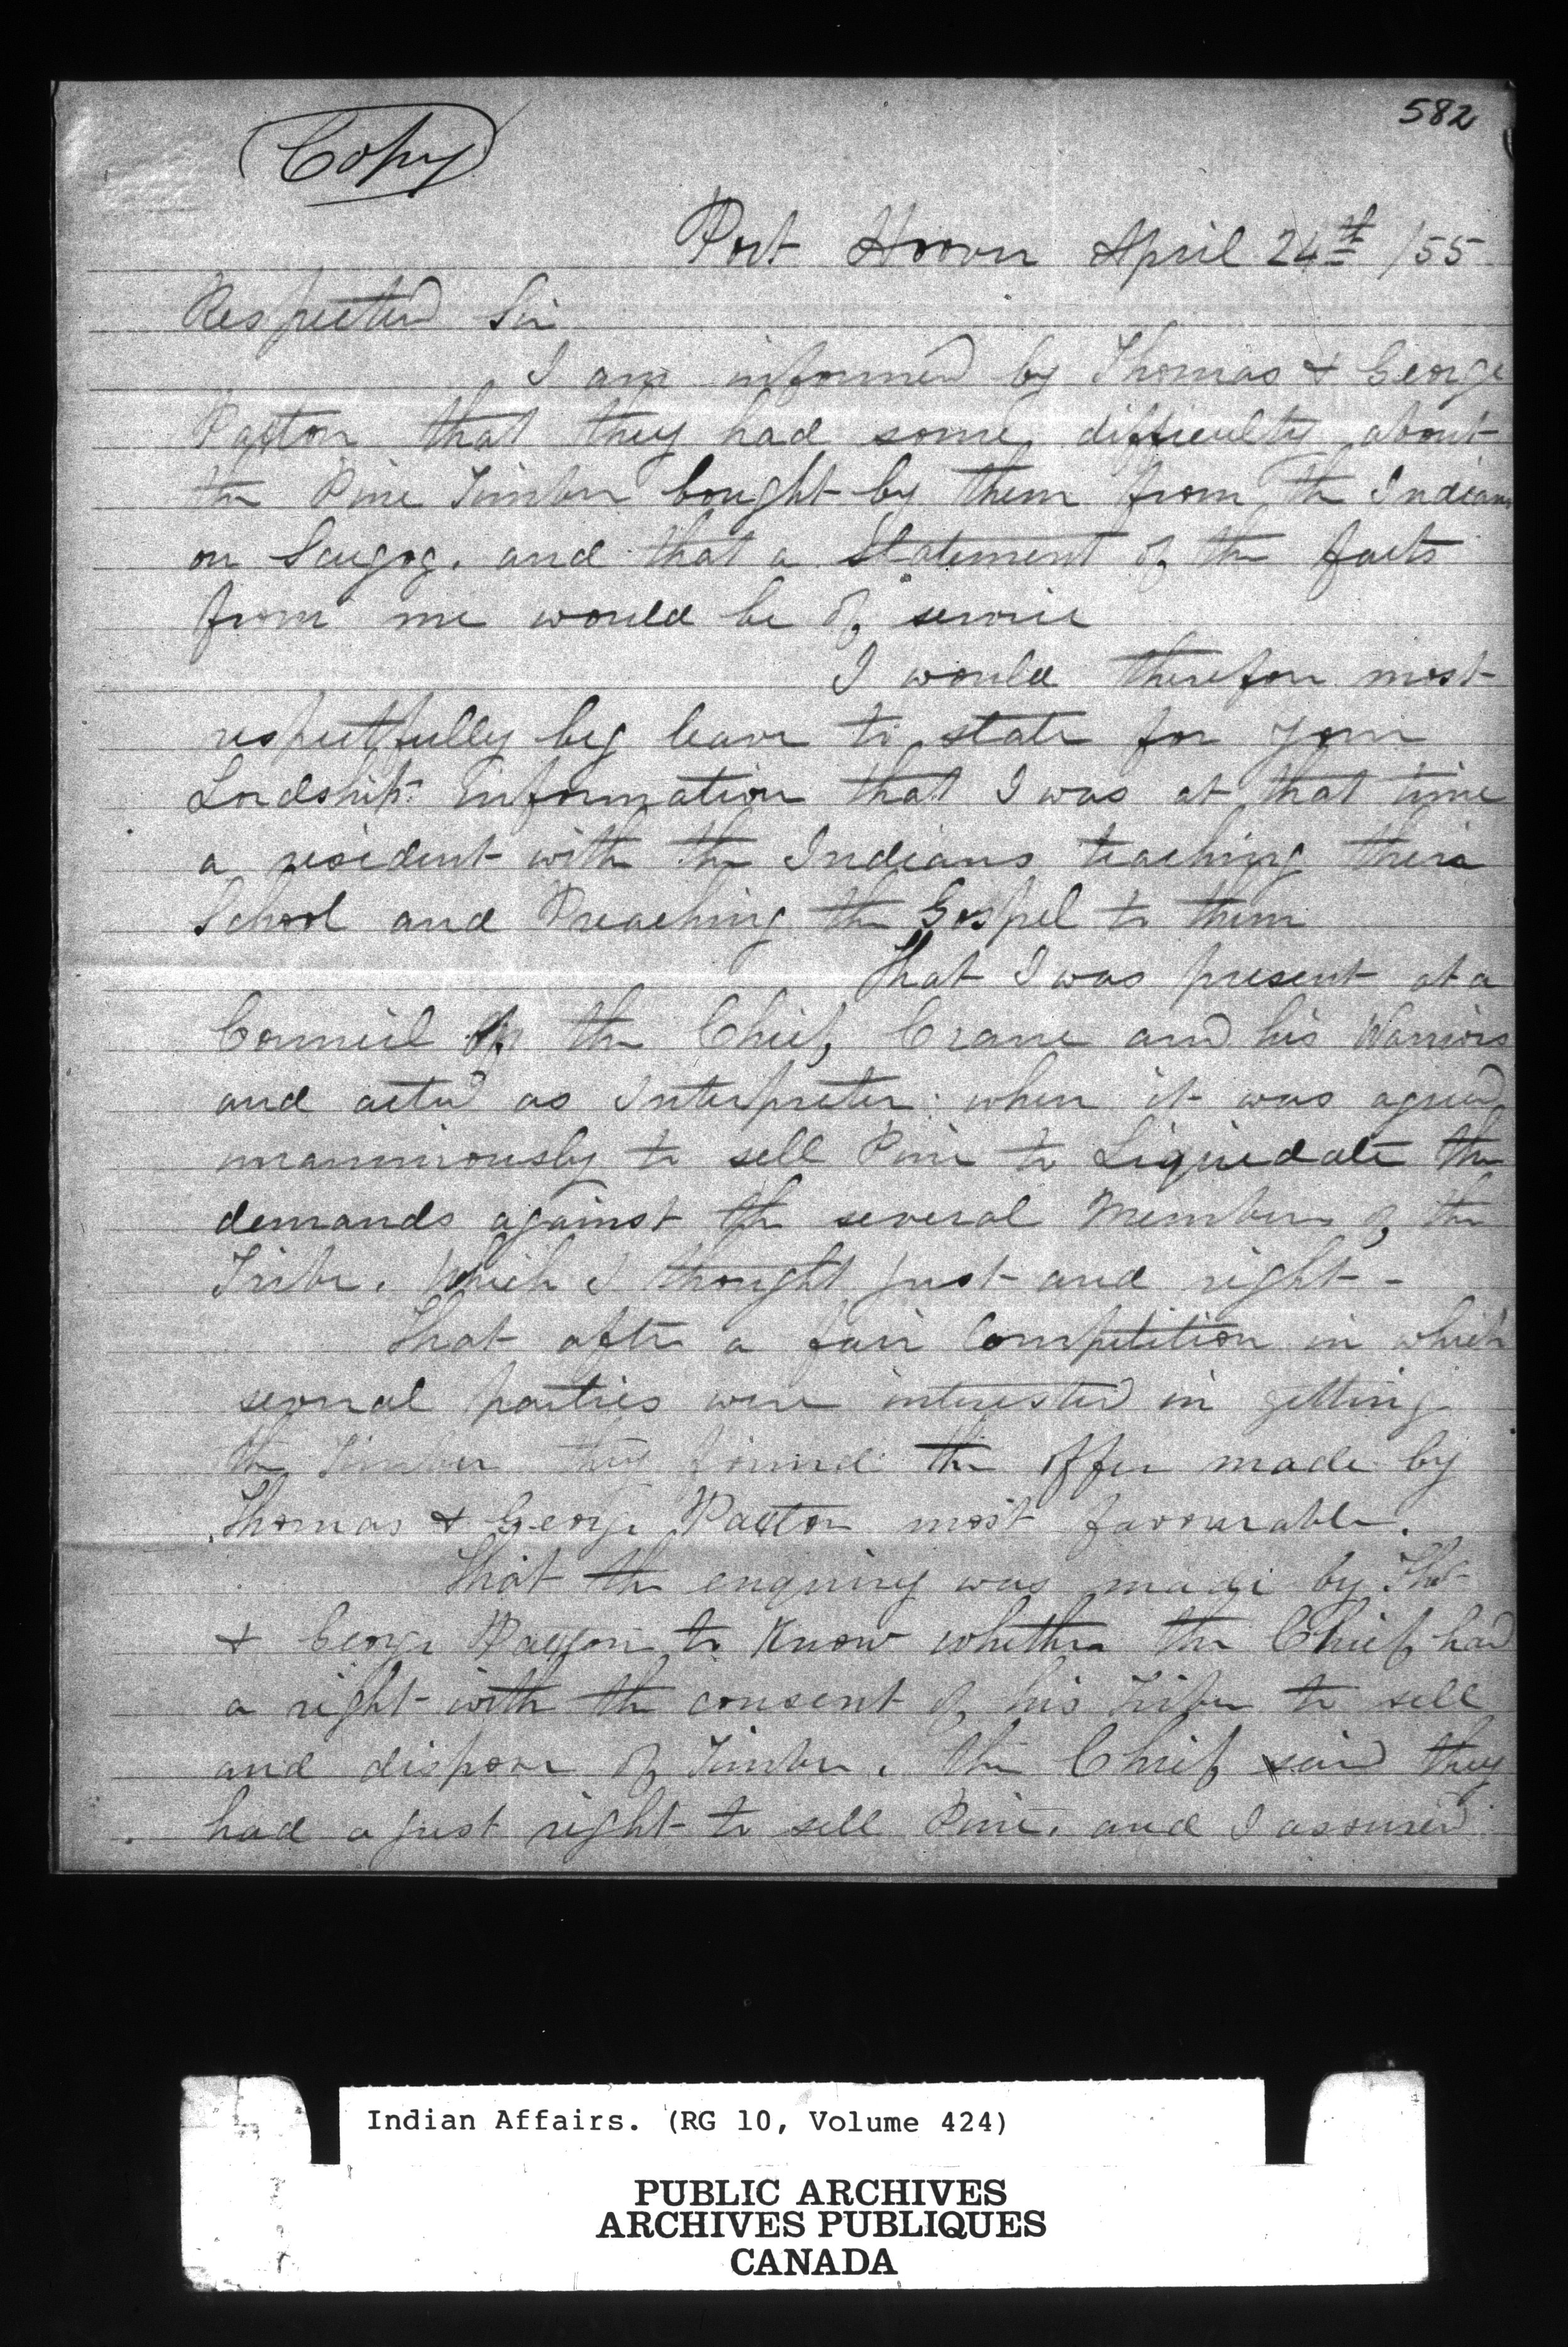 582
Copy
Port Hoover April 24th /55
Respected Sir
I am informed by Thomas & George
Paxton that they had some difficulty about
the Pine Timber bought by them from the Indians
on Scugog. and that a Statement of the facts
from me would be of service
I would therefore most
respectfully beg leave to state for your
Lordship's Information that I was at that time
a resident with the Indians teaching their
School and Preaching the Gospel to them
That I was present at a
Council of the Chief Crane and his Warriors
and acted as Interpreter: when it was agreed
unanimously to sell Pine to Liquedate the
demands against the several Members of the
Tribe. Which I thought just and right -
That after a fair Competition in which
several parties were interested in getting
the Timber they found the offer made by
Thomas & George Paxton most favourable.
That the enquiry was made by Thos
& George Paxton to Know whether the Chief had
a right with the consent of his Tribe to sell
and dispose of Timber. the Chief said they
had a just right to sell Pine. and I assured
Indian Affairs. (RG 10, Volume 424)
PUBLIC ARCHIVES
ARCHIVES PUBLIQUES
CANADA